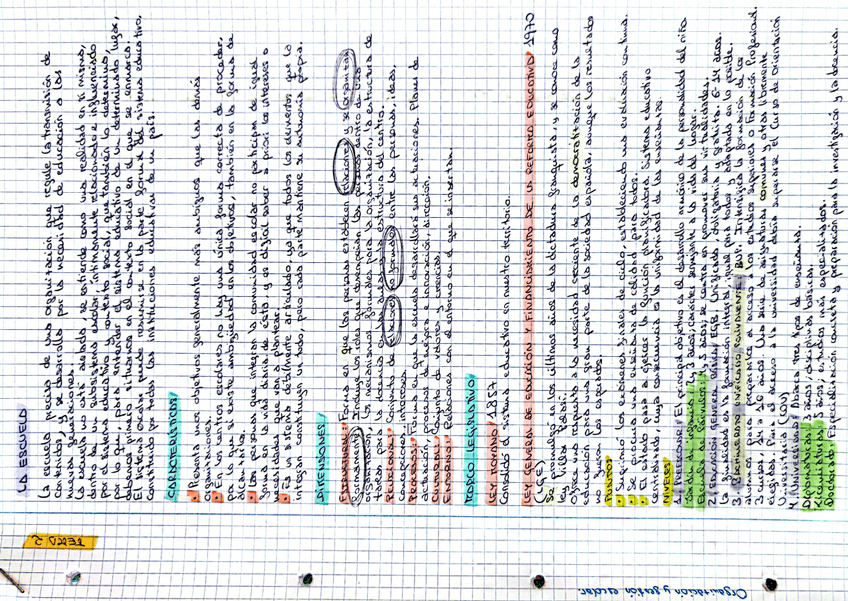 Organización y gestión escolar.
TEMA 2
LA ESCUELA
La escuela precisa de una organización que regule la transmisión de
contenidos, y se desarrolla por la necesidad de educación a las
nuevas generaciones.
La escuela no está aislada, se entiende como una realidad en sí misma,
dentro de un subsistema escolar, íntimamente relacionado e influenciado
por el sistema educativo y contexto social, que también lo determina,
por lo que, para entender el sistema educativo de un determinado lugar,
debemos primero situarnos en el contexto social en el que se enmarca.
El sistema escolar puede resumirse en la parte formal del sistema educativo,
constituido por todas las instituciones educativas de un país.
CARACTERÍSTICAS
Presenta unos objetivos generalmente más ambiguos que las demás
organizaciones.
En los centros escolares no hay una única forma correcta de proceder,
por lo que si existe ambigüedad en los objetivos, también en la forma de
alcanzarlos.
Las personas que integran la comunidad escolar no participan de igual
forma en la vida diaria de ésta y es difícil saber a priori los intereses o
necesidades que van a plantear.
Es un sistema débilmente articulado, ya que todos los elementos que lo
integran constituyen un todo, pero cada parte mantiene su autonomía propia.
DIMENSIONES
ESTRUCTURAL: Forma en que las personas establecen relaciones y se organizan
formalmente. Incluye los roles que desempeñan las personas dentro de una
organización, los mecanismos formales para la organización, la estructura de
tareas y la estructura del centro.
RELACIONAL: Conjunto de relaciones no formales entre las personas, ideas,
concepciones, intereses.
PROCESOS: Forma en que la escuela desarrollará sus actuaciones. Planes de
actuación, procesos de mejora e innovación, dirección.
CULTURAL: Conjunto de valores y creencias.
ENTORNO: Relaciones con el entorno en el que se insertan.
MARCO LEGISLATIVO
LEY MOYANO, 1857
Consolidó el sistema educativo en nuestro territorio.
LEY GENERAL DE EDUCACIÓN Y FINANCIAMIENTO DE LA REFORMA EDUCATIVA, 1970
(LGE)
Se promulgó en los últimos años de la dictadura franquista, y se conoce como
ley Villar Palasí.
Objetivo: responder a la necesidad creciente de la democratización de la
educación para una gran parte de la sociedad española, aunque los resultados
no fueron los esperados.
PUNTOS
Suprimió los exámenes finales de ciclo, estableciendo una evaluación continua.
Se busca una enseñanza de calidad para todos.
El Estado pasa a ejercer la función planificadora. Sistema educativo
centralizado, cuya consecuencia es la uniformidad de las enseñanzas.
NIVELES
1. PREESCOLAR. El principal objetivo es el desarrollo armónico de la personalidad del niño.
Jardín de infancia: 2 y 3 años, carácter semejante a la vida del hogar.
4 y 5 años, se centra en promover sus virtualidades.
2. EDUCACIÓN GENERAL BÁSICA. EGB. Unificada, obligatoria y gratuita, 6-14 años.
La finalidad es la formación integral, igual para todos y adaptada en lo posible.
3. BACHILLERATO UNIFICADO POLIVALENTE. BUP. Intensifica la formación de los
alumnos para prepararlos al acceso a los estudios superiores o Formación Profesional.
3 cursos, de 14 a 16 años. Una serie de asignaturas comunes y otras libremente
elegidas. Para el acceso a la universidad debía superarse el Curso de Orientación
Universitaria (COU)
4. UNIVERSITARIA. Abarca tres tipos de enseñanza.
Diplomaturas, 3 años, disciplinas básicas.
Licenciaturas, 5 años, estudios más especializados.
Doctorado. Especialización concreta y preparación para la investigación y la docencia.